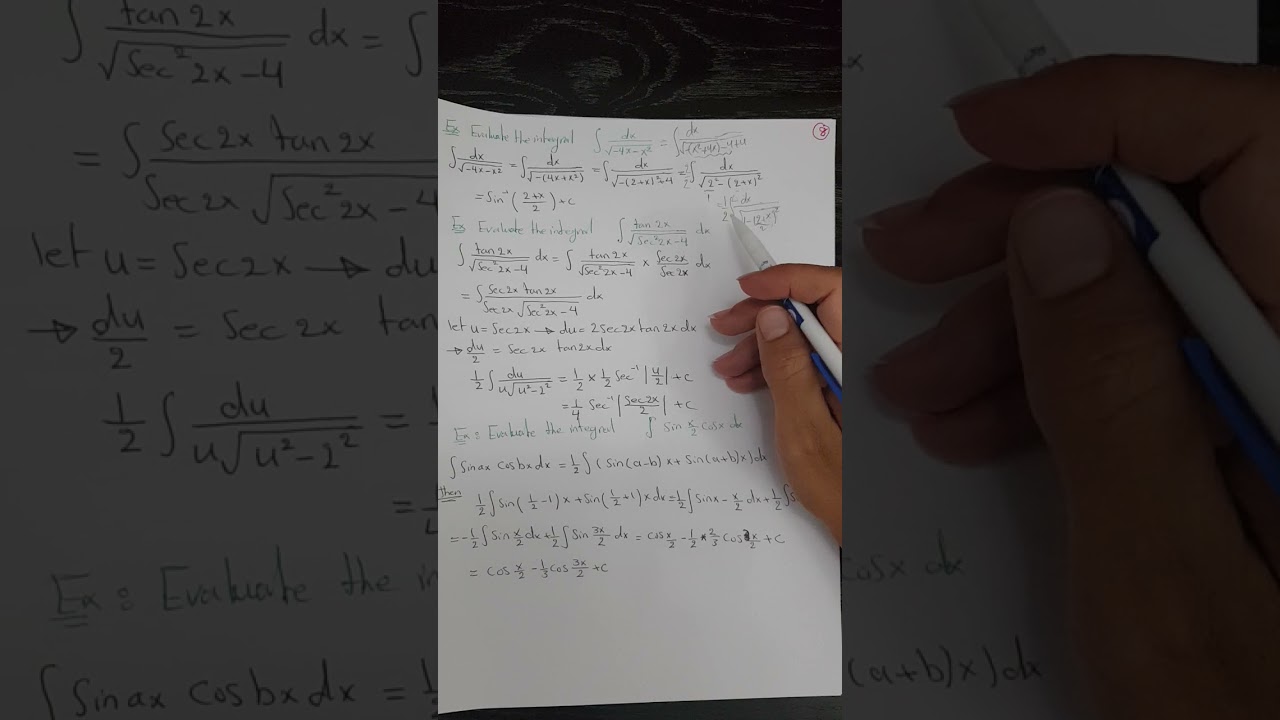 8
Ex Evaluate the integral ∫ dx/√(-4x-x²) = ∫ dx/√(-(x²+4x)-4+4)
∫ dx/√(-4x-x²) = ∫ dx/√(-(4x+x²)) = ∫ dx/√(-(2+x)²+4) = ½ ∫ dx/√(2²-(2+x)²)
= Sin⁻¹ ((2+x)/2) + C
= ½
Ex Evaluate the integral ∫ tan2x/√(Sec²2x-4) dx
∫ tan2x/√(Sec²2x-4) dx = ∫ tan2x/√(Sec²2x-4) × Sec2x/Sec2x dx
= ∫ Sec2x tan2x/(Sec2x √(Sec²2x-4)) dx
let u = Sec2x → du = 2Sec2x tan2x dx
→ du/2 = Sec2x tan2x dx
½ ∫ du/(u√(u²-2²)) = ½ × ½ Sec⁻¹ |u/2| + C
= ¼ Sec⁻¹ |Sec2x/2| + C
Ex : Evaluate the integral ∫ Sin x/2 cosx dx
∫ Sinax Cosbx dx = ½ ∫ (Sin(a-b)x + Sin(a+b)x) dx
then ½ ∫ Sin(½-1)x + Sin(½+1)x dx = ½ ∫ Sin - x/2 dx + ½ ∫ S
= -½ ∫ Sin x/2 dx + ½ ∫ Sin 3x/2 dx = cos x/2 - ½ * 2/3 cos 3x/2 + C
= cos x/2 - ⅓ cos 3x/2 + C